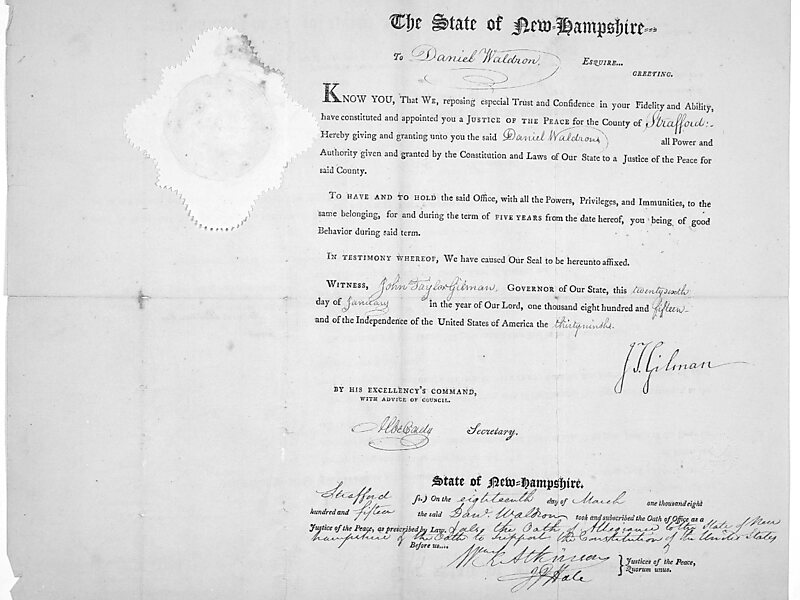 The State of New-Hampshire
To Daniel Waldron, ESQUIRE...
GREETING.
KNOW YOU, THAT WE, reposing especial Trust and Confidence in your Fidelity and Ability,
have constituted and appointed you a JUSTICE OF THE PEACE for the County of Strafford:-
Hereby giving and granting unto you the said Daniel Waldron all Power and
Authority given and granted by the Constitution and Laws of Our State to a Justice of the Peace for
said County.
TO HAVE AND TO HOLD the said Office, with all the Powers, Privileges, and Immunities, to the
same belonging, for and during the term of FIVE YEARS from the date hereof, you being of good
Behavior during said term.
IN TESTIMONY WHEREOF, We have caused Our Seal to be hereunto affixed.
WITNESS, John Taylor Gilman, GOVERNOR of Our State, this
day of January in the year of Our Lord, one thousand eight hundred and fifteen
and of the Independence of the United States of America the thirtyninth.
J T Gilman
BY HIS EXCELLENCY'S COMMAND,
WITH ADVICE OF COUNCIL.
Secretary.
State of New-Hampshire.
Strafford ss.) On the eighteenth day of March one thousand eight
hundred and fifteen the said Danl. Waldron took and subscribed the Oath of Office as a
Justice of the Peace, as prescribed by Law, & also the Oath of Allegiance to the State of New
Hampshire & the Oath to support the Constitution of the United States
Before us....
Wm K Atkinson } Justices of the Peace,
J P Hale } Quorum unus.